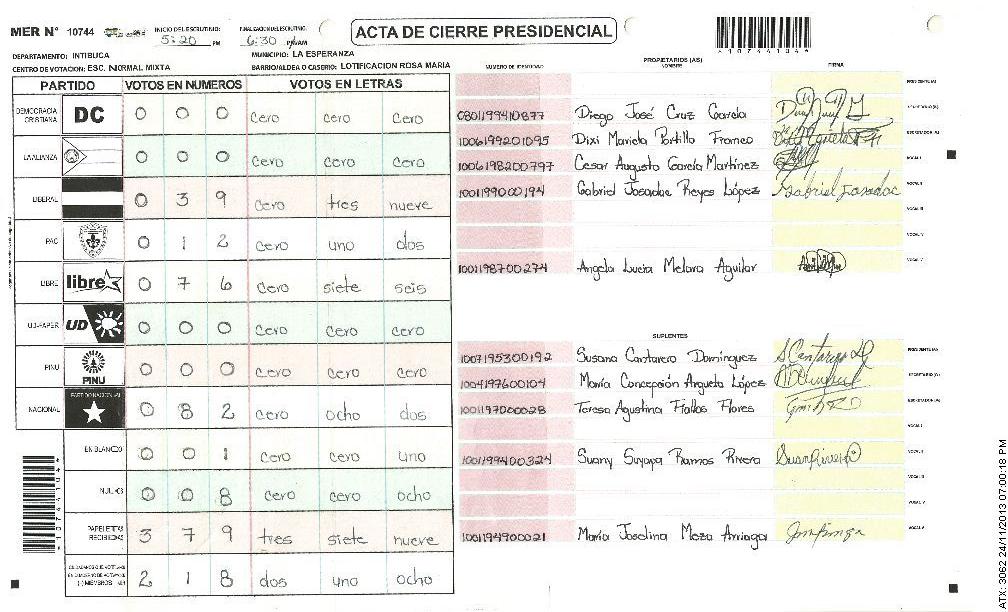 MER N° 10744
INICIO DEL ESCRUTINIO: 5:20 PM
FINALIZACION DEL ESCRUTINIO: 6:30 PM/AM
ACTA DE CIERRE PRESIDENCIAL
DEPARTAMENTO: INTIBUCA
MUNICIPIO: LA ESPERANZA
CENTRO DE VOTACION: ESC. NORMAL MIXTA
BARRIO/ALDEA O CASERIO: LOTIFICACION ROSA MARIA
PARTIDO VOTOS EN NUMEROS VOTOS EN LETRAS
DEMOCRACIA CRISTIANA DC 0 0 0 cero cero cero
LA ALIANZA 0 0 0 cero cero cero
LIBERAL 0 3 9 cero tres nueve
PAC 0 1 2 cero uno dos
LIBRE libre 0 7 6 cero siete seis
UD-FAPER UD 0 0 0 cero cero cero
PINU PINU 0 0 0 cero cero cero
NACIONAL PARTIDO NACIONAL 0 8 2 cero ocho dos
EN BLANCO 0 0 1 cero cero uno
NULOS 0 0 8 cero cero ocho
PAPELETAS RECIBIDAS 3 7 9 tres siete nueve
2 1 8 dos uno ocho
PROPIETARIOS (AS)
NUMERO DE IDENTIDAD NOMBRE FIRMA
PRESIDENTE(A)
0801199410877 Diego José Cruz García
1006199201095 Dixi Mariela Portillo Franco
1006198200797 Cesar Augusto García Martínez VOCAL I
1001199000194 Gabriel Josadac Reyes López Gabriel Josadac VOCAL II
VOCAL III
VOCAL IV
1001198700274 Angela Lucia Melara Aguilar VOCAL V
SUPLENTES
1007195300192 Susana Cantarero Domínguez PRESIDENTE(A)
1004197600104 María Concepción Argueta López
1001197000028 Teresa Agustina Fiallos Flores
VOCAL I
1001199400324 Suany Suyapa Ramos Rivera VOCAL II
VOCAL III
VOCAL IV
1001194900021 María Joselina Meza Arriaga VOCAL V
*10744104*
ATX: 3062 24/11/2013 07:00:18 PM